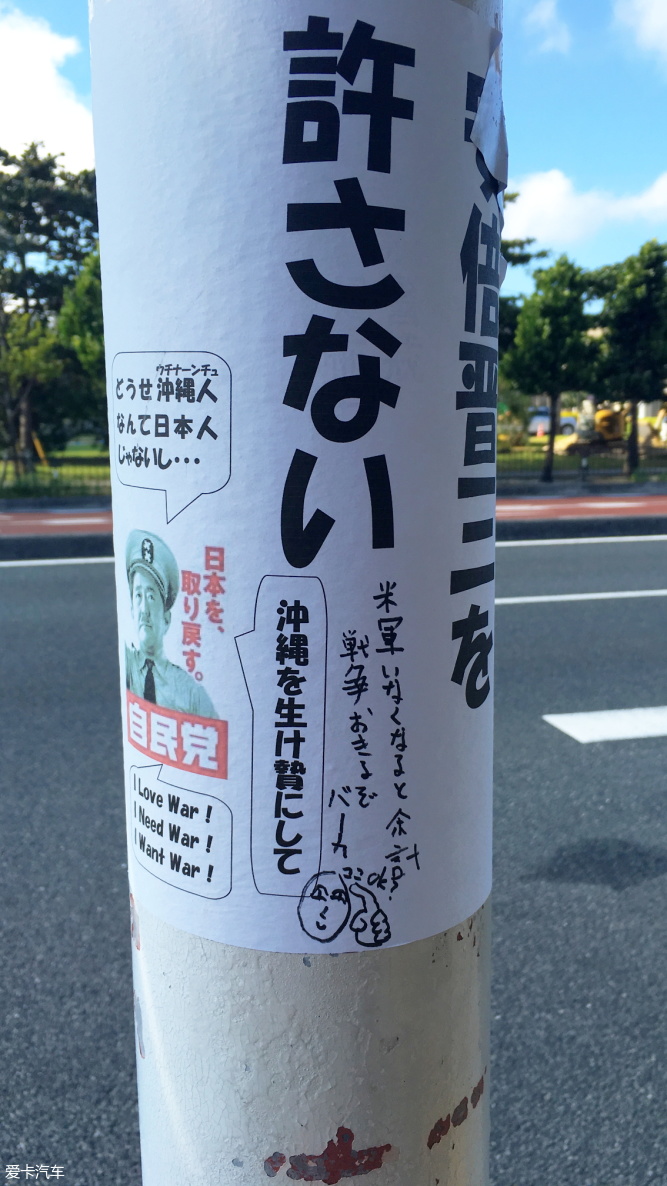 安倍晋三を
許さない
ウチナーンチュ
どうせ沖縄人
なんて日本人
じゃないし・・・
日本を、
取り戻す。
自民党
I Love War!
I Need War!
I Want War!
沖縄を生け贄にして
米軍いなくなると余計
戦争おきるぞ
バーカ
ココ
OK?
爱卡汽车